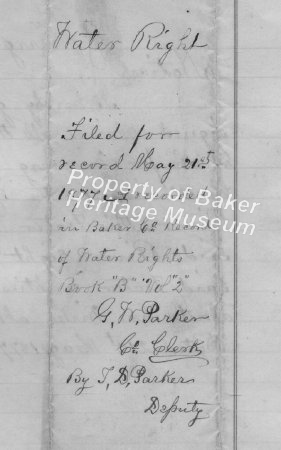 Water Right
Filed for
record May 21st
1877 & recorded
in Baker Co. Record
of Water Rights
Book "B" Vol "2"
G. W. Parker
Co. Clerk
By T. D. Parker
Deputy
Property of Baker
Heritage Museum